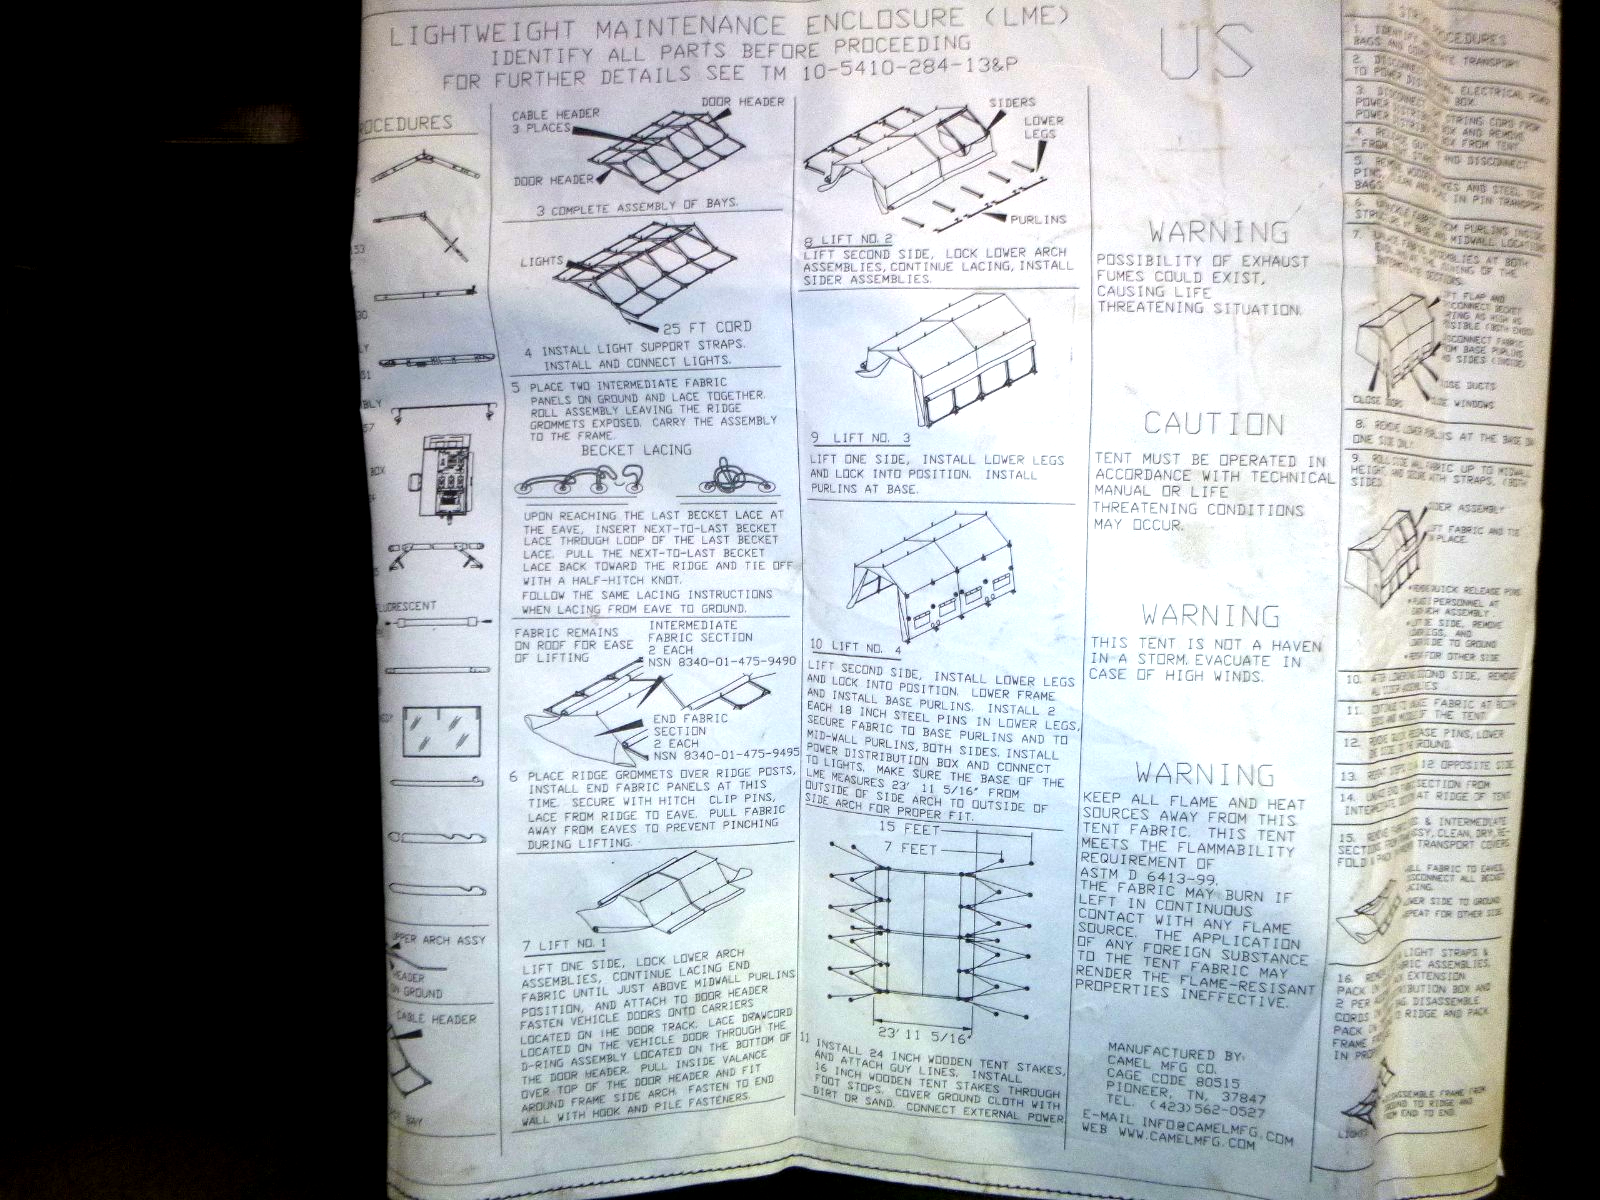 LIGHTWEIGHT MAINTENANCE ENCLOSURE (LME)
IDENTIFY ALL PARTS BEFORE PROCEEDING
FOR FURTHER DETAILS SEE TM 10-5410-284-13&P
US
OCEDURES
BOX
UPPER ARCH ASSY
HEADER
ON GROUND
CABLE HEADER
BAY
CABLE HEADER
3 PLACES
DOOR HEADER
DOOR HEADER
3 COMPLETE ASSEMBLY OF BAYS.
LIGHTS
25 FT CORD
4 INSTALL LIGHT SUPPORT STRAPS.
INSTALL AND CONNECT LIGHTS.
5 PLACE TWO INTERMEDIATE FABRIC
PANELS ON GROUND AND LACE TOGETHER.
ROLL ASSEMBLY LEAVING THE RIDGE
GROMMETS EXPOSED. CARRY THE ASSEMBLY
TO THE FRAME.
BECKET LACING
UPON REACHING THE LAST BECKET LACE AT
THE EAVE, INSERT NEXT-TO-LAST BECKET
LACE THROUGH LOOP OF THE LAST BECKET
LACE. PULL THE NEXT-TO-LAST BECKET
LACE BACK TOWARD THE RIDGE AND TIE OFF
WITH A HALF-HITCH KNOT.
FOLLOW THE SAME LACING INSTRUCTIONS
WHEN LACING FROM EAVE TO GROUND.
FABRIC REMAINS
ON ROOF FOR EASE
OF LIFTING
INTERMEDIATE
FABRIC SECTION
2 EACH
NSN 8340-01-475-9490
END FABRIC
SECTION
2 EACH
NSN 8340-01-475-9495
6 PLACE RIDGE GROMMETS OVER RIDGE POSTS,
INSTALL END FABRIC PANELS AT THIS
TIME. SECURE WITH HITCH CLIP PINS,
LACE FROM RIDGE TO EAVE. PULL FABRIC
AWAY FROM EAVES TO PREVENT PINCHING
DURING LIFTING.
7 LIFT NO. 1
LIFT ONE SIDE, LOCK LOWER ARCH
ASSEMBLIES, CONTINUE LACING END
FABRIC UNTIL JUST ABOVE MIDWALL PURLINS
POSITION, AND ATTACH TO DOOR HEADER
FASTEN VEHICLE DOORS ONTO CARRIERS
LOCATED ON THE DOOR TRACK. LACE DRAWCORD
LOCATED ON THE VEHICLE DOOR THROUGH THE
D-RING ASSEMBLY LOCATED ON THE BOTTOM OF
THE DOOR HEADER. PULL INSIDE VALANCE
OVER TOP OF THE DOOR HEADER AND FIT
AROUND FRAME SIDE ARCH. FASTEN TO END
WALL WITH HOOK AND PILE FASTENERS.
SIDERS
LOWER
LEGS
PURLINS
8 LIFT NO. 2
LIFT SECOND SIDE, LOCK LOWER ARCH
ASSEMBLIES, CONTINUE LACING, INSTALL
SIDER ASSEMBLIES.
9 LIFT NO. 3
LIFT ONE SIDE, INSTALL LOWER LEGS
AND LOCK INTO POSITION. INSTALL
PURLINS AT BASE.
10 LIFT NO. 4
LIFT SECOND SIDE, INSTALL LOWER LEGS
AND LOCK INTO POSITION. LOWER FRAME
AND INSTALL BASE PURLINS. INSTALL 2
EACH 18 INCH STEEL PINS IN LOWER LEGS,
SECURE FABRIC TO BASE PURLINS AND TO
MID-WALL PURLINS, BOTH SIDES. INSTALL
POWER DISTRIBUTION BOX AND CONNECT
TO LIGHTS. MAKE SURE THE BASE OF THE
LME MEASURES 23' 11 5/16" FROM
OUTSIDE OF SIDE ARCH TO OUTSIDE OF
SIDE ARCH FOR PROPER FIT.
15 FEET
7 FEET
23' 11 5/16"
11 INSTALL 24 INCH WOODEN TENT STAKES,
AND ATTACH GUY LINES. INSTALL
16 INCH WOODEN TENT STAKES THROUGH
FOOT STOPS. COVER GROUND CLOTH WITH
DIRT OR SAND. CONNECT EXTERNAL POWER
WARNING
POSSIBILITY OF EXHAUST
FUMES COULD EXIST,
CAUSING LIFE
THREATENING SITUATION.
CAUTION
TENT MUST BE OPERATED IN
ACCORDANCE WITH TECHNICAL
MANUAL OR LIFE
THREATENING CONDITIONS
MAY OCCUR.
WARNING
THIS TENT IS NOT A HAVEN
IN A STORM. EVACUATE IN
CASE OF HIGH WINDS.
WARNING
KEEP ALL FLAME AND HEAT
SOURCES AWAY FROM THIS
TENT FABRIC. THIS TENT
MEETS THE FLAMMABILITY
REQUIREMENT OF
ASTM D 6413-99.
THE FABRIC MAY BURN IF
LEFT IN CONTINUOUS
CONTACT WITH ANY FLAME
SOURCE. THE APPLICATION
OF ANY FOREIGN SUBSTANCE
TO THE TENT FABRIC MAY
RENDER THE FLAME-RESISANT
PROPERTIES INEFFECTIVE.
MANUFACTURED BY:
CAMEL MFG CO.
CAGE CODE 80515
PIONEER, TN, 37847
TEL. (423)562-0527
E-MAIL INFO@CAMELMFG.COM
WEB WWW.CAMELMFG.COM
CLOSE
WINDOWS
8.
AT THE BASE ON
ONE SIDE ONLY.
9.
FABRIC UP TO
HEIGHT AND
WITH STRAPS.
ASSEMBLY
FABRIC AND TIE
10.
SIDE, REMOVE
11.
FABRIC AT BOTH
THE TENT
12.
PINS, LOWER
13.
12 OPPOSITE SIDE
14.
SECTION FROM
AT RIDGE OF TENT
15.
& INTERMEDIATE
CLEAN, DRY,
TRANSPORT COVERS
FABRIC TO EAVES
SIDE TO GROUND
FOR OTHER SIDE
16.
LIGHT STRAPS &
ASSEMBLIES.
EXTENSION
BOX AND
DISASSEMBLE
RIDGE AND PACK